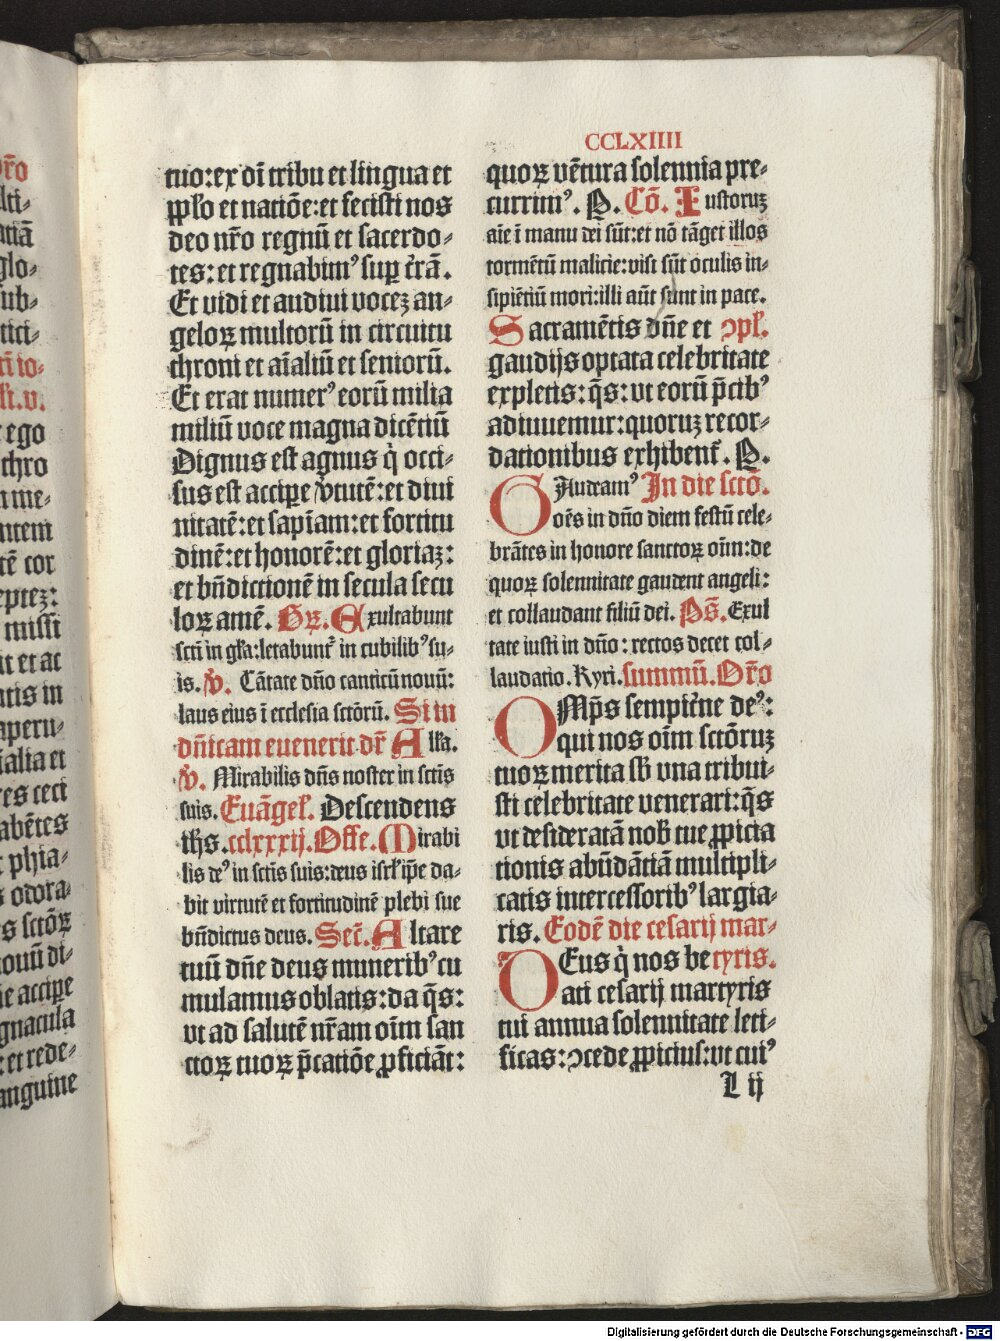 CCLXIIII
tuo:ex oī tribu et lingua et
pplo et natiōe:et fecisti nos
deo nr̄o regnū et sacerdo⸗
tes: et regnabimꝰ sup t̄rā.
Et vidi et audiui vocez an⸗
geloꝝ multorū in circuitu
throni et aīaliū et seniorū.
Et erat numerꝰ eorū milia
miliū voce magna dicētiū
Dignus est agnus q̇ occi⸗
sus est accipe v̇tutē:et diui
nitatē:et sapīam:et fortitu
dinē:et honorē:et gloriaz:
et bn̄dictionē in secula secu
loꝝ amē. Gꝝ. Exultabunt
sctī in gl̄a:letabunt̄ in cubilibꝰ su⸗
is. V̇. Cātate dn̄o canticū nouū:
laus eius ī ecclesia sctōrū. Si in
dn̄icam euenerit dr̄ Alla.
V̇. Mirabilis dn̄s noster in sctīs
suis. Euāgel. Descendens
ihs̄.cclxxxij.Offe. Mirabi
lis deꝰ in sctīs suis:deus isrl̄ ip̄e da⸗
bit virtutē et fortitudinē plebi sue
bn̄dictus deus. Secr̄. Altare
tuū dn̄e deus muneribꝰ cu
mulamus oblatis:da q̄s:
vt ad salutē nr̄am oīm san
ctoꝝ tuoꝝ p̄catiōe ꝓficiāt:
quoꝝ vētura solennia pre⸗
currimꝰ. P. Cō. Iustoruz
aīe ī manu dei sūt:et nō tāget illos
tormētū malicie:visi sūt oculis in⸗
sipiētiū mori:illi aūt sunt in pace.
Sacramētis dn̄e et ↄpl.
gaudijs optata celebritate
expletis: q̄s: vt eorū p̄cibꝰ
adiuuemur:quoruz recor⸗
dationibus exhibent̄. P.
GAudeamꝰ In die sctō.
oēs in dn̄o diem festū cele⸗
brātes in honore sanctoꝝ oīm:de
quoꝝ solennitate gaudent angeli:
et collaudant filiū dei. Ps̄. Exul
tate iusti in dn̄o: rectos decet col⸗
laudatio. Kyri. summū. Or̄o
OMp̄s sempit̄ne deꝰ:
qui nos oīm sctōruz
tuoꝝ merita sb̄ vna tribui⸗
sti celebritate venerari:q̄s
vt desideratā nob̄ tue ꝓpicia
tionis abūdātiā multipli⸗
catis intercessoribꝰ largia⸗
ris. Eodē die cesarij mar⸗
DEus q̇ nos be tyris.
ati cesarij martyris
tui annua solennitate leti⸗
ficas:ↄcede ꝓpicius:vt cuiꝰ
L ij
Digitalisierung gefördert durch die Deutsche Forschungsgemeinschaft - DFG